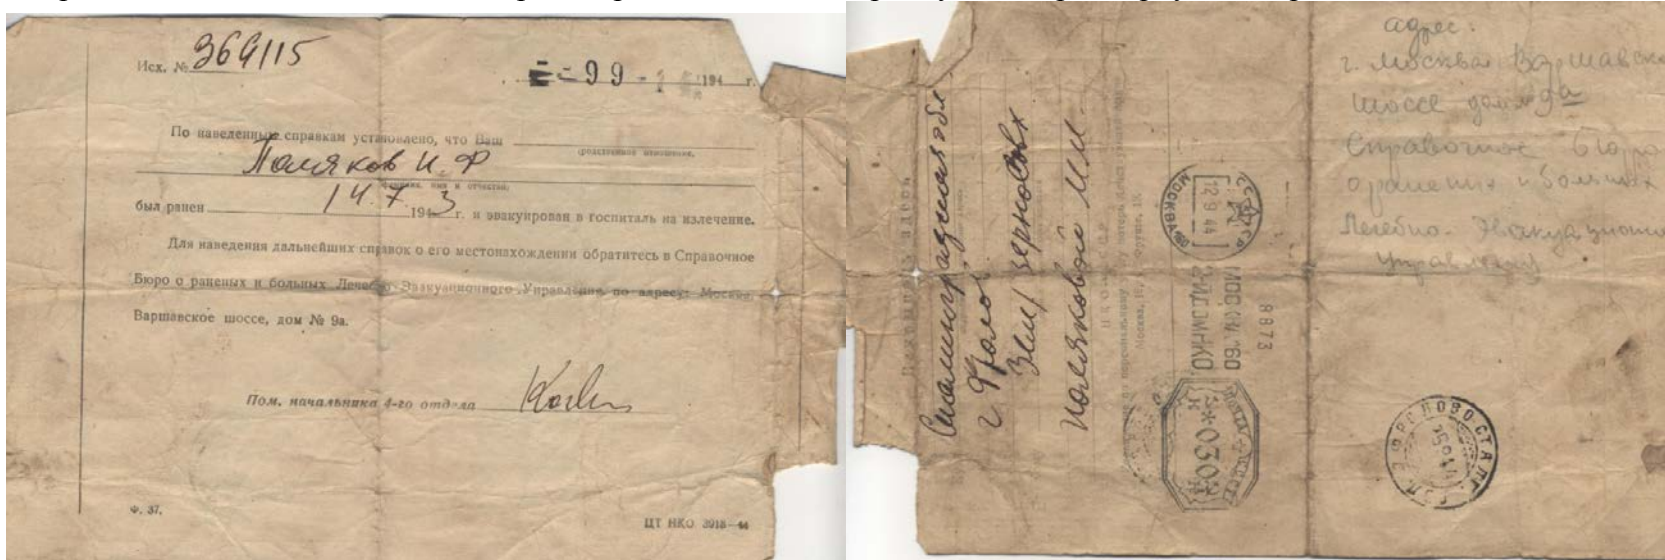 Исх. № 364115
- 99 - 194 г.
По наведенным справкам установлено, что Ваш
(родственное отношение,
Поляков И. Ф
фамилия, имя и отчество)
был ранен 14. 7. 1943 г. и эвакуирован в госпиталь на излечение.
Для наведения дальнейших справок о его местонахождении обратитесь в Справочное
Бюро о раненых и больных Лечебно-Эвакуационного Управления, по адресу: Москва,
Варшавское шоссе, дом № 9а.
Пом. начальника 4-го отдела
Ф. 37.
ЦТ НКО 3918—44
Сталинградская обл
г. Фролов
Поляковой М.М.
МОСКВА 160
12 9 44
СССР
МОСКВА 160
8873
ПОЧТА СССР
030
ФРОЛОВО СТАЛ
адрес:
г. Москва Варшавск
шоссе дом № 9а
Справочное бюро
о раненых и больных
Лечебно-Эвакуационн
управления